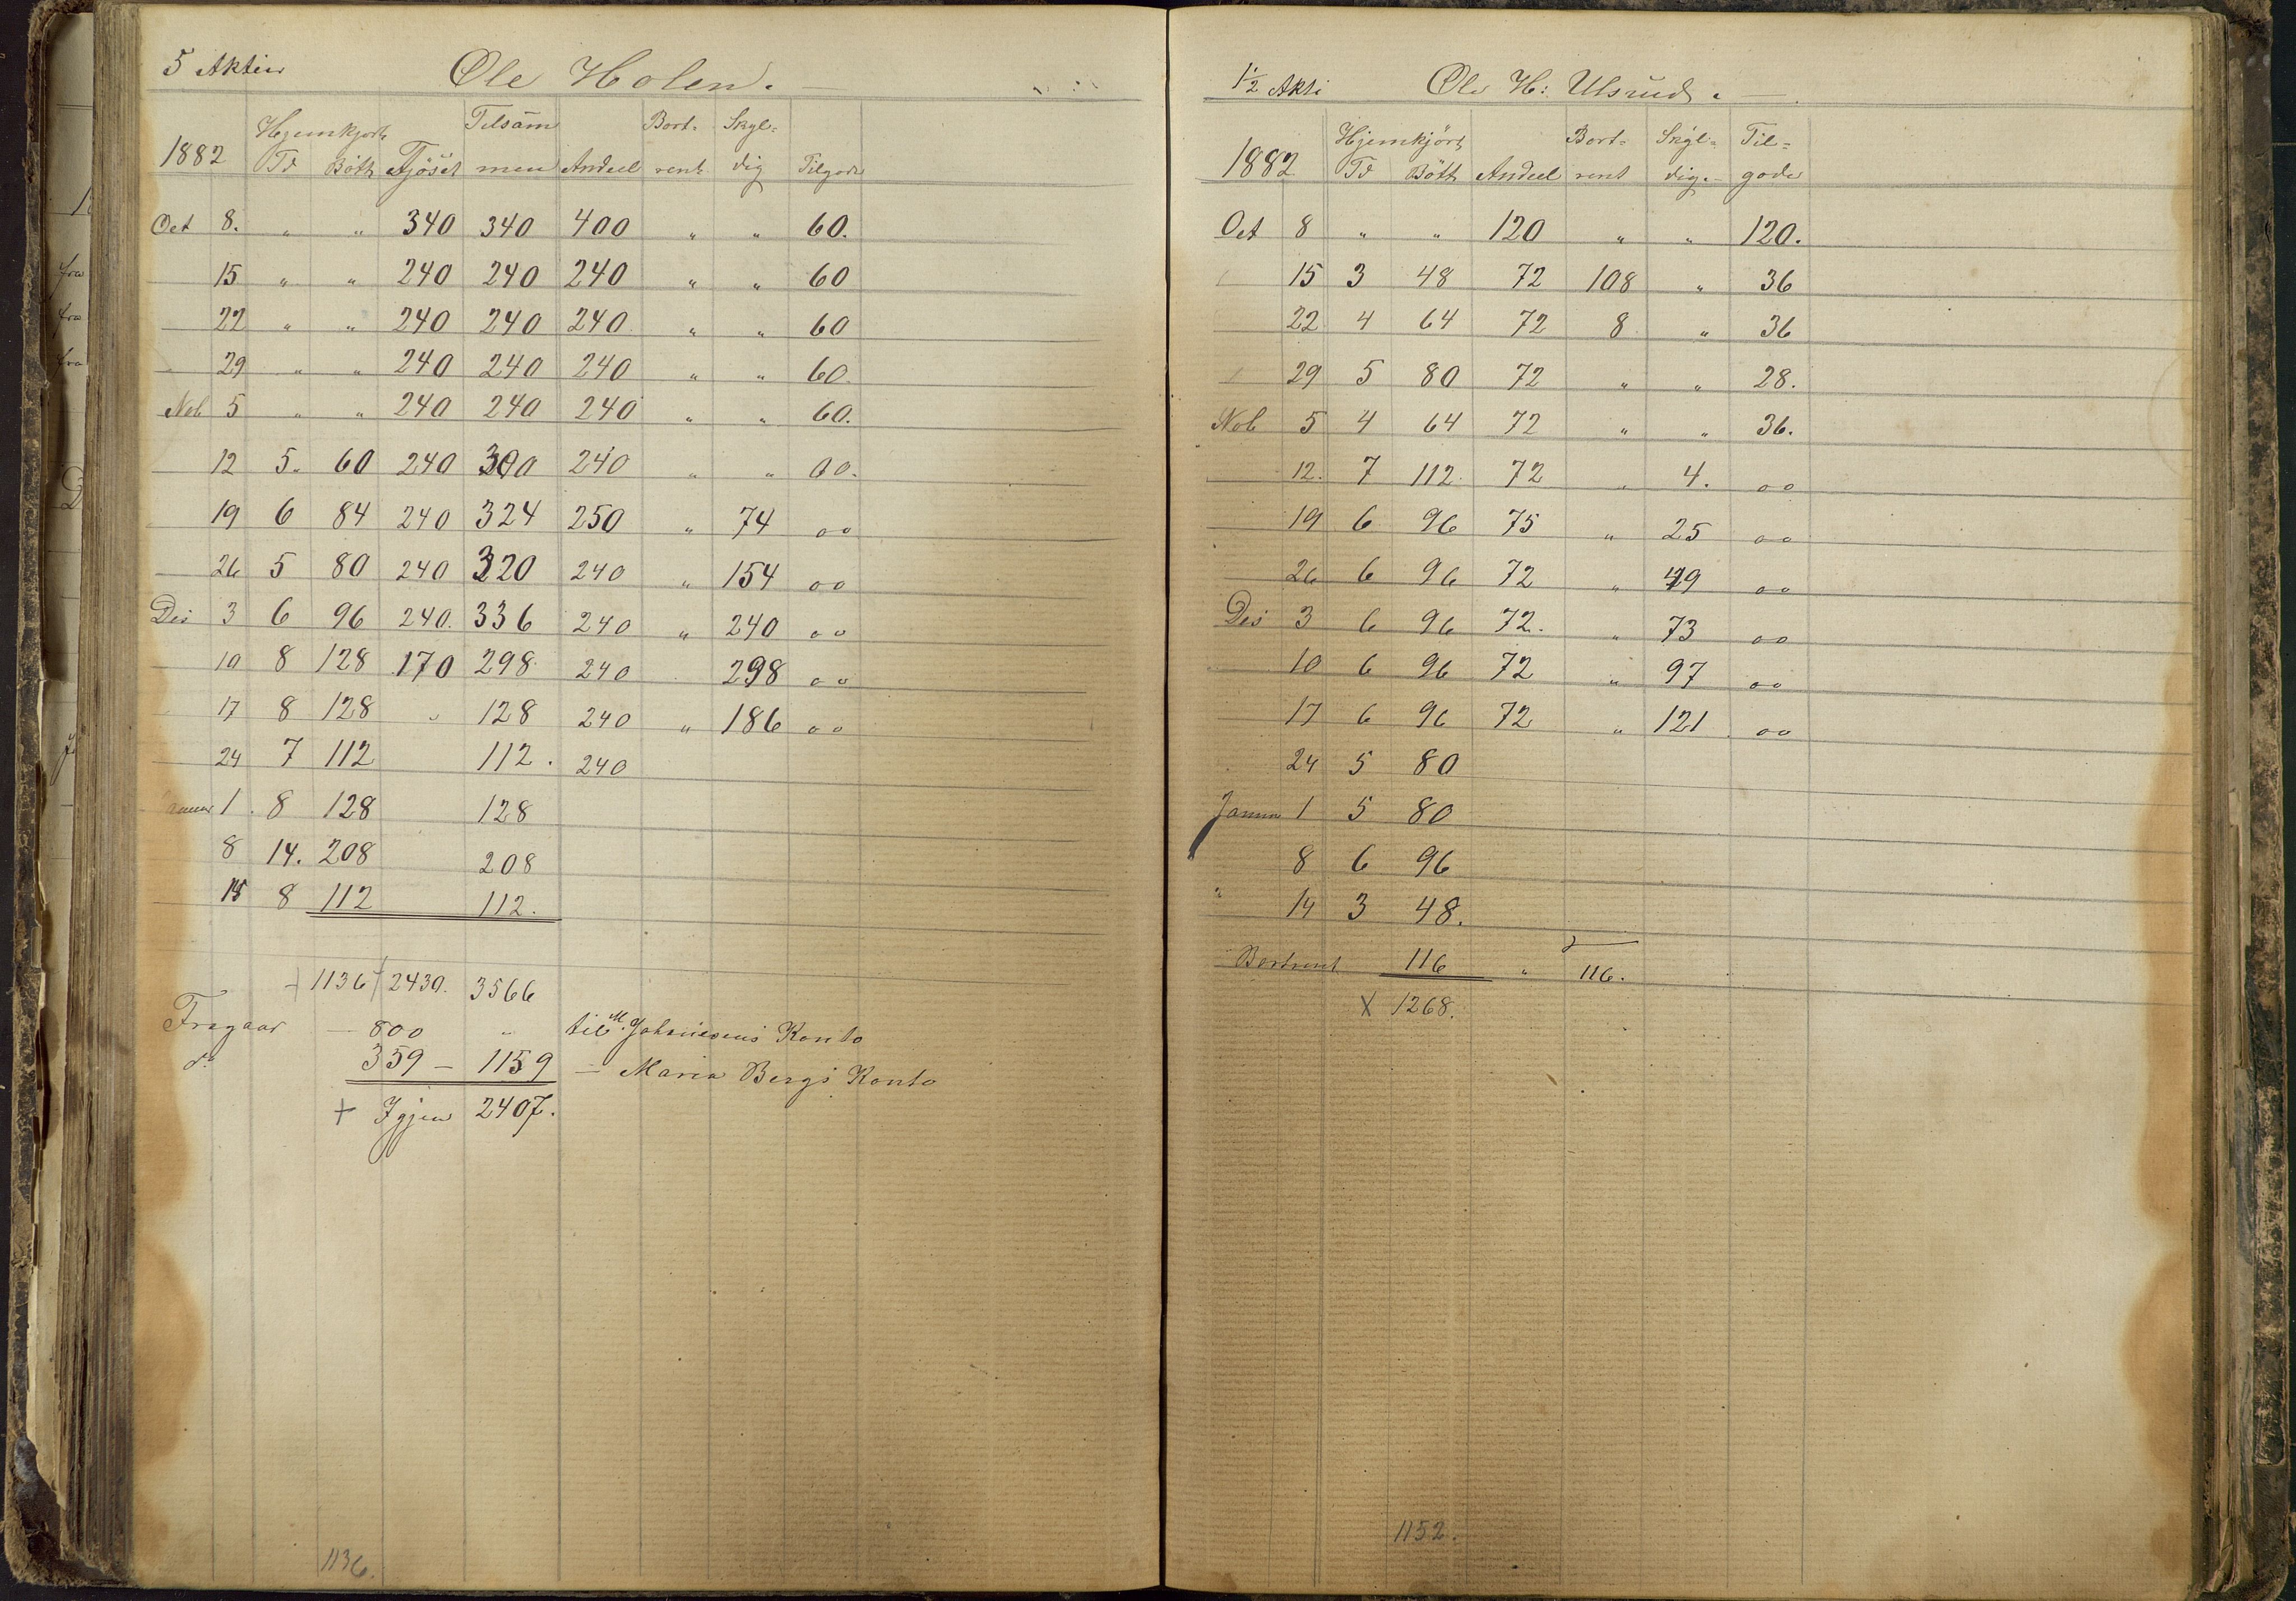 5 Aktier Ole Holen.
Hjemkjørt Tilsam Bort- Skyl=
1882 Td Bött Fjöset men Andeel rent dig Tilgode
Oct 8. " " 340 340 400 " " 60.
15 " " 240 240 240 " " 60
22 " " 240 240 240 " " 60
29 " " 240 240 240 " " 60.
Nob 5 " " 240 240 240 " " 60.
12 5. 60 240 300 240 " " 00.
19 6 84 240 324 250 " 74 00
26 5 80 240 320 240 " 154 00
Des 3 6 96 240. 336 240 " 240 00
10 8 128 170 298. 240 298 00
17 8 128 " 128 240 " 186 00
24 7 112 112. 240
Januar 1. 8 128 128
8 14. 208 208
15 8 112 112.
+ 1136 + 2430. 3566
Fragaar — 800 " til M. Johnsens Konto
do 359 — 1159 — Maria Bergs Konto
+ Igjen 2407.
1136.
1½ Akti Ole H: Ulsrud.
Hjemkjört Bort= Skyl= Til=
1882 Td Bött Andeel rent dig. gode
Oct 8 " " 120 " " 120.
15 3 48 72 108 " 36
22 4 64 72 8 " 36
29 5 80 72 " " 28.
Nob 5 4 64 72 " " 36.
12. 7 112. 72 " 4. 00
19 6 96 75 " 25 00
26 6 96 72 " 49 00
Des 3 6 96 72. " 73 00
10 6 96 72 " 97 00
17 6 96 72 " 121 00
24 5 80
Janua 1 5 80
8 6 96
" 14 3 48.
Bortrent 116 " 116.
X 1268.
1152.